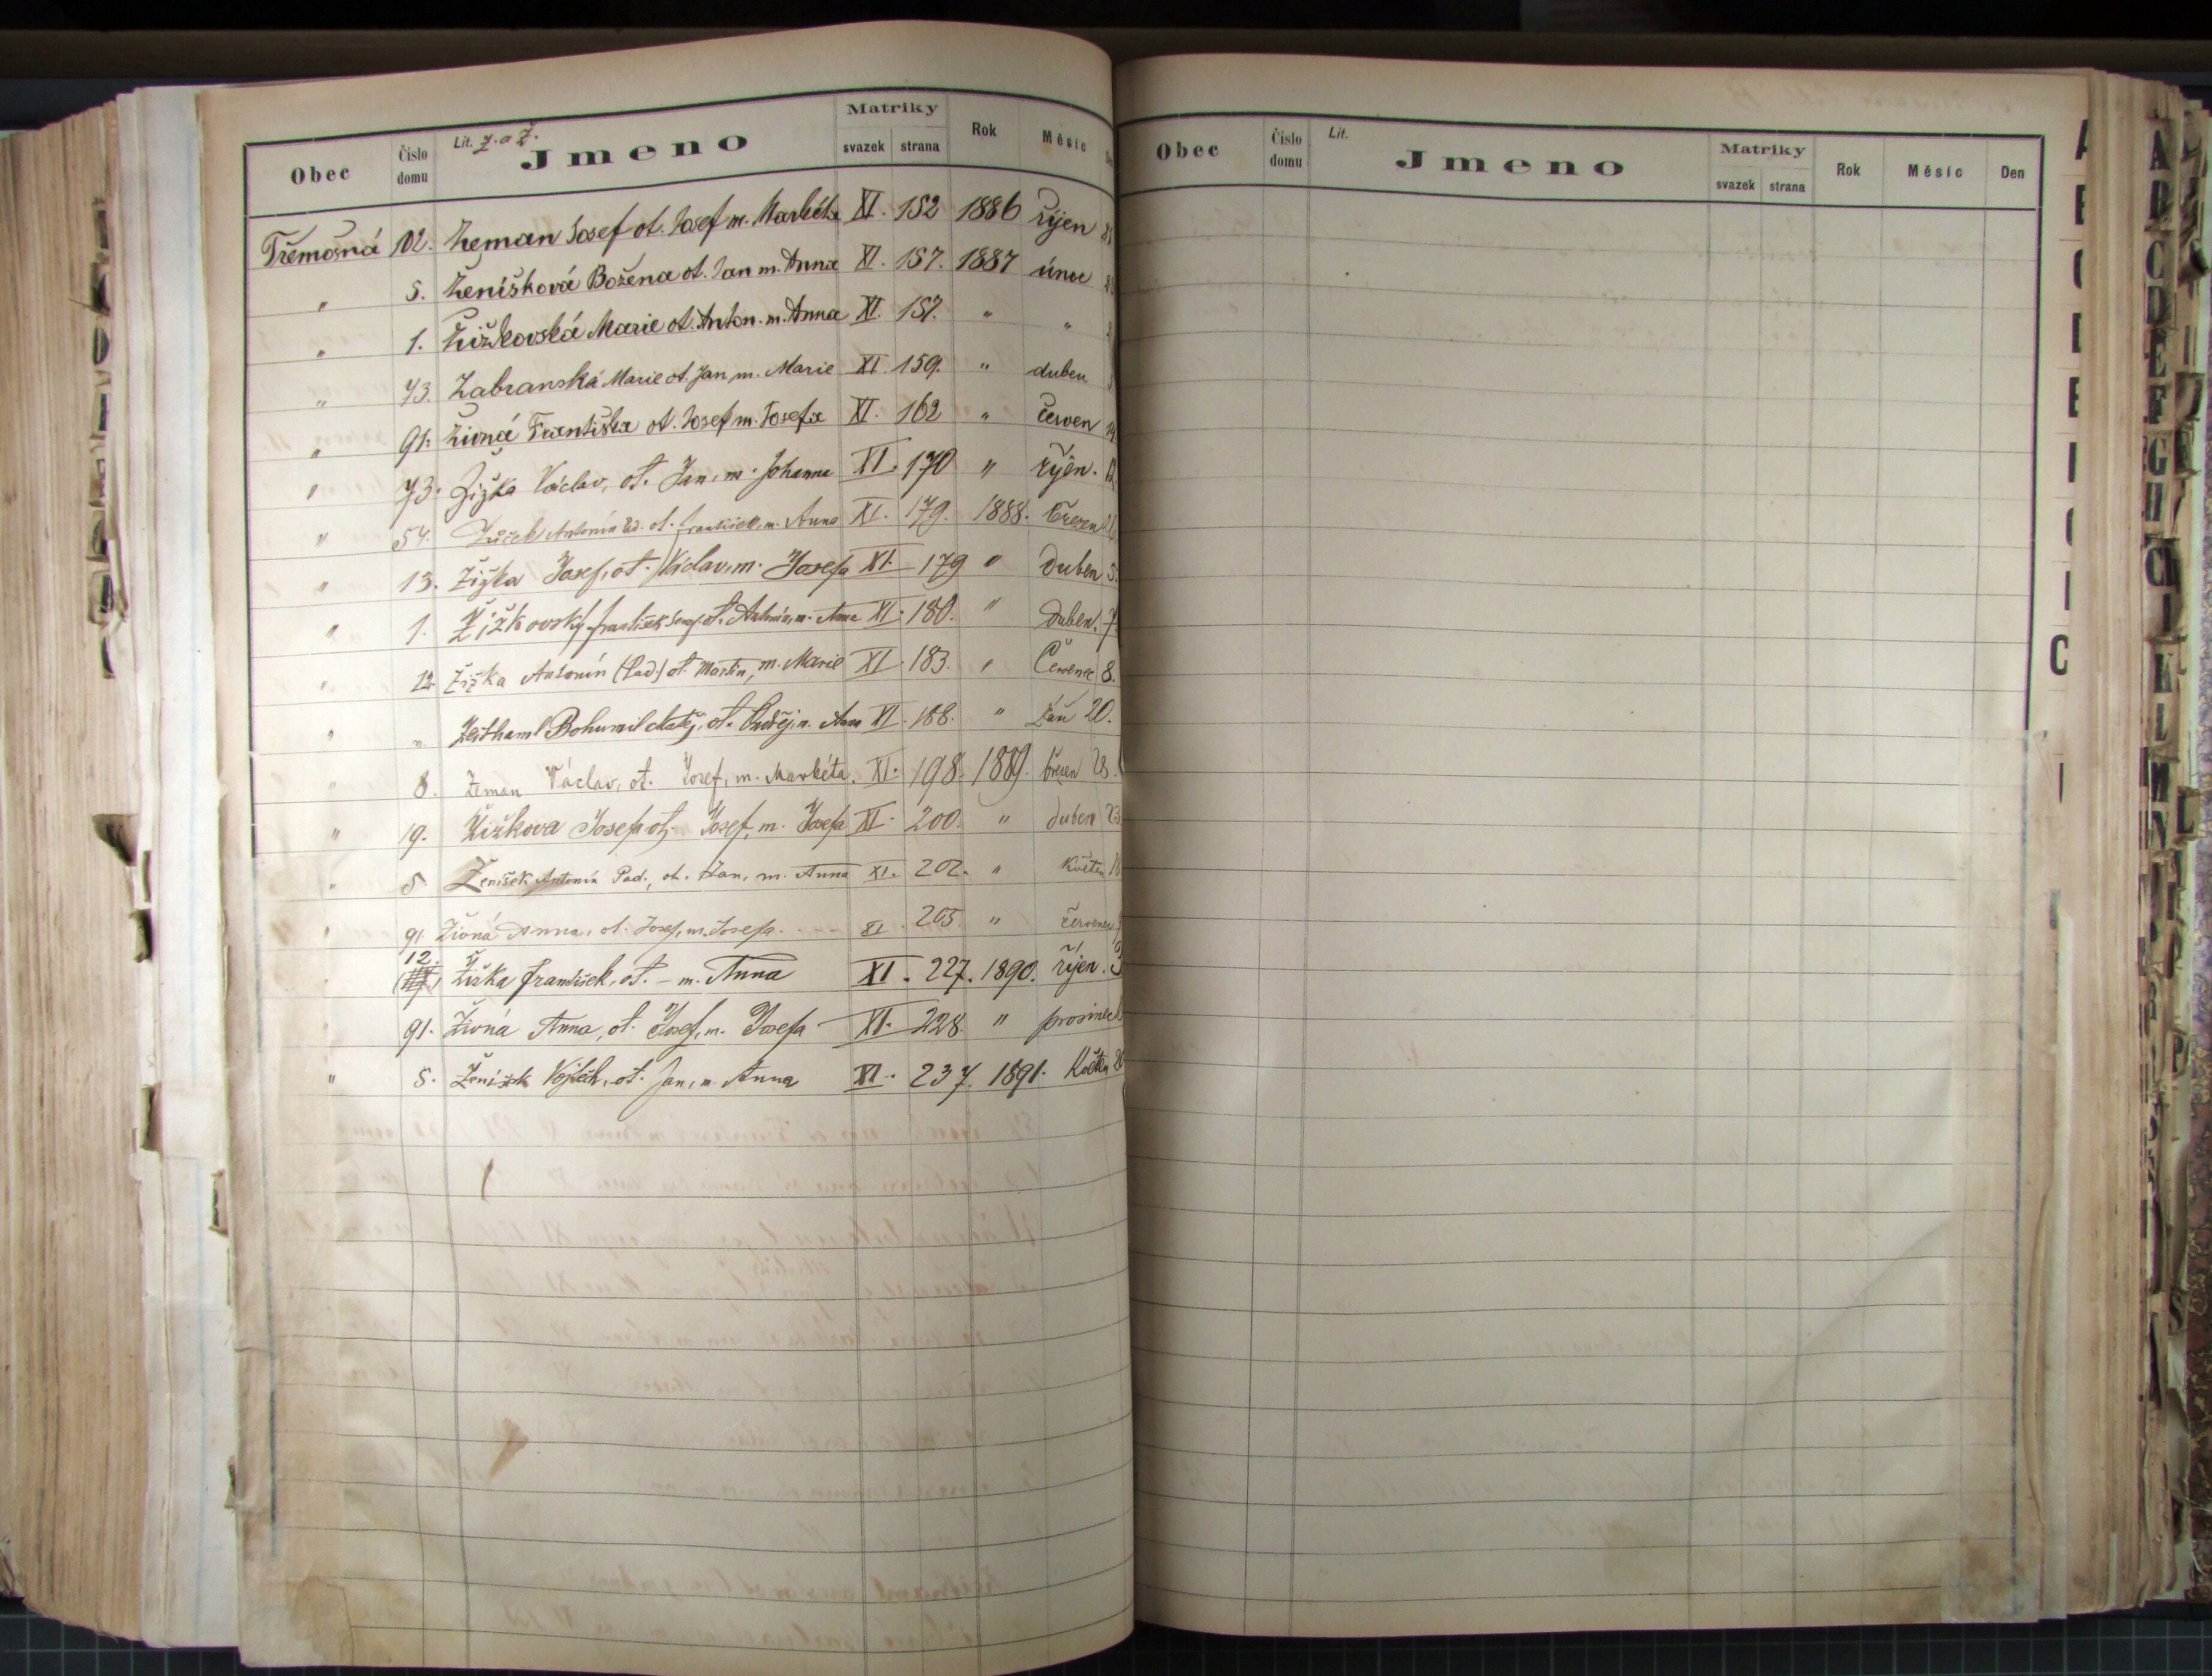 Lit. Z. a Ž.
Obec Číslo domu Jmeno Matriky svazek strana Rok Měsíc
Třemošná 102. Zeman Josef ot. Josef m. Markéta XI. 152 1886 říjen
" 5. Ženíšková Božena ot. Jan m. Anna XI. 157. 1887 únor
" 1. Žižkovská Marie ot. Anton. m. Anna XI. 157. " "
" 73. Zabranská Marie ot. Jan m. Marie XI. 159. " duben
" 91. Živná Františka ot. Josef m. Josefa XI. 162 " červen
" 73. Žižka Václav, ot. Jan, m. Johanna XI. 170 " říjen.
" 54. Antonín Ed. ot. František, m. Anna XI. 179. 1888. březen
" 13. Žižka Josef, ot. Václav, m. Josefa XI. 179 " duben 5.
" 1. Žižkovský František ot. Antonín, m. Anna XI. 180. " duben. 7.
" 12. Žižka Antonín (Pad.) ot. Martin, m. Marie XI. 183. " Červenec 8.
" " Zeithaml Bohumil Matěj, ot. Ondřej, m. Anna XI. 188. " Září 20.
" 8. Zeman Václav, ot. Josef, m. Markéta. XI. 198. 1889. březen 28.
" 19. Žižkova Josefa ot. Josef, m. Josefa XI. 200. " duben 23
" 5 Ženíšek Antonín Pad., ot. Jan, m. Anna XI. 202. " Květen
" 91. Živná Anna, ot. Josef, m. Josefa. XI. 205. " červenec
" 12. Žižka František, ot. – m. Anna XI. 227. 1890. říjen. 3
" 91. Živná Anna, ot. Josef, m. Josefa XI. 228. " prosinec
" 5. Ženíšek Vojtěch, ot. Jan, m. Anna XI. 237. 1891. Květen
Obec Číslo domu Lit. Jmeno Matriky svazek strana Rok Měsíc Den